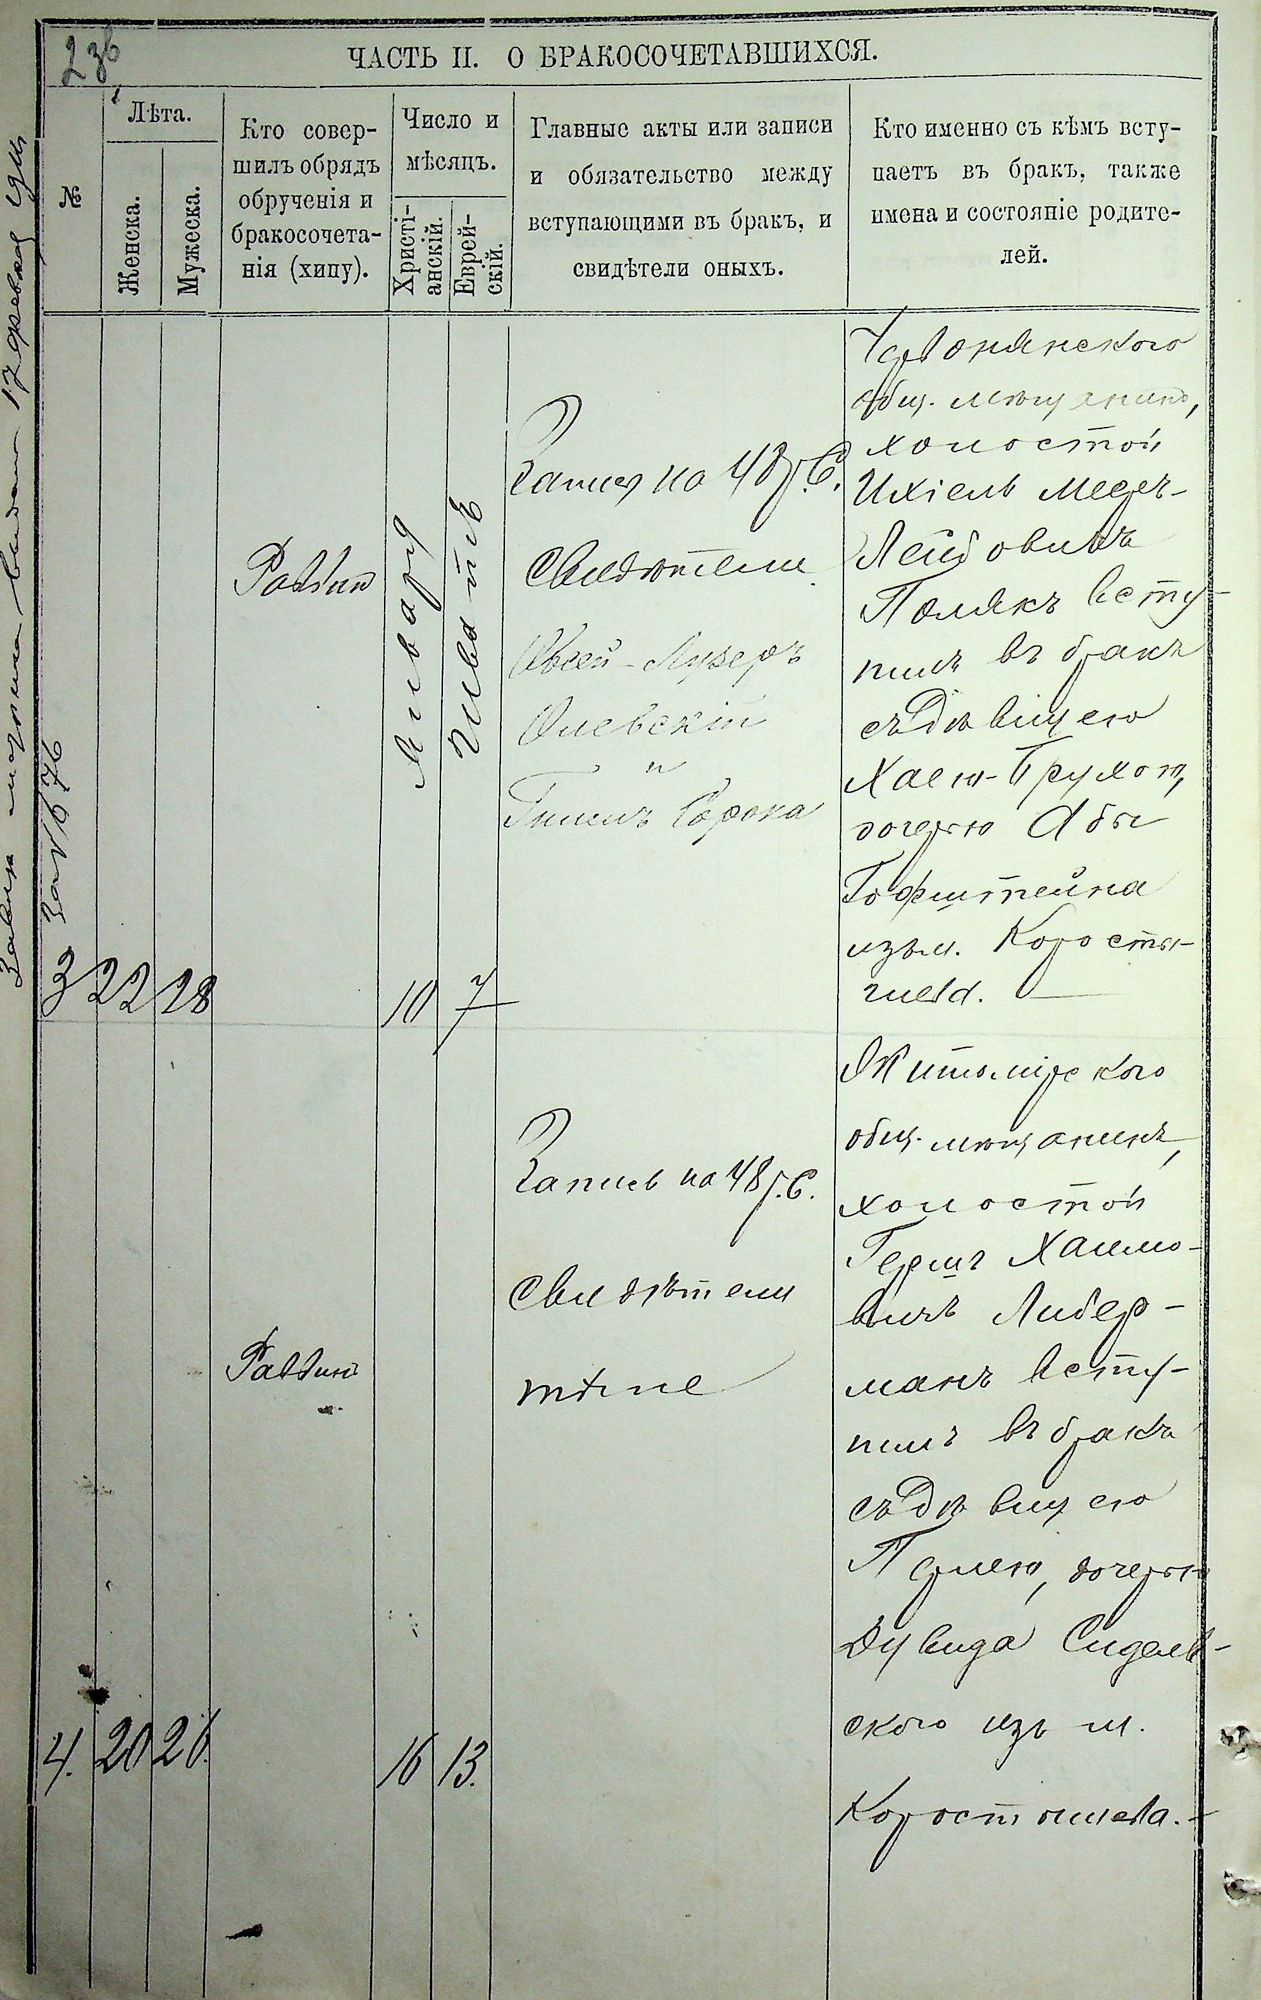 236
ЧАСТЬ II. О БРАКОСОЧЕТАВШИХСЯ.
№
Лѣта.
Женска.
Мужеска.
Кто совер-
шилъ обрядъ
обрученія и
бракосочета-
нія (хипу).
Число и
мѣсяцъ.
Христі-
анскій.
Еврей-
скій.
Главные акты или записи
и обязательство между
вступающими въ бракъ, и
свидѣтели оныхъ.
Кто именно съ кѣмъ всту-
паетъ въ бракъ, также
имена и состояніе родите-
лей.
3
22
28
Раввин
Января
10
7
Запись на 48 р. С.
Свидѣтели
Овсей-Лузеръ
Олевскій
и
Сорока
общ. мѣщанинъ,
холостой
Ихіель Мееръ-
Лейбовичъ
Полякъ всту-
пилъ въ бракъ
съ Дѣвицею
Хаею-Брухою,
дочерью Абы
Гофштейна
изъ м. Косты-
шева.
4.
20
26.
Раввинъ
16
13.
Запись на 48 р. С.
Свидѣтели
тѣже
Житомірского
общ. мѣщанинъ,
холостой
Гершъ Хаимо-
вичъ Либер-
манъ всту-
пилъ въ бракъ
съ Дѣвицею
Перлею, дочерью
Дувида Сидель-
ского изъ м.
Коростышева.